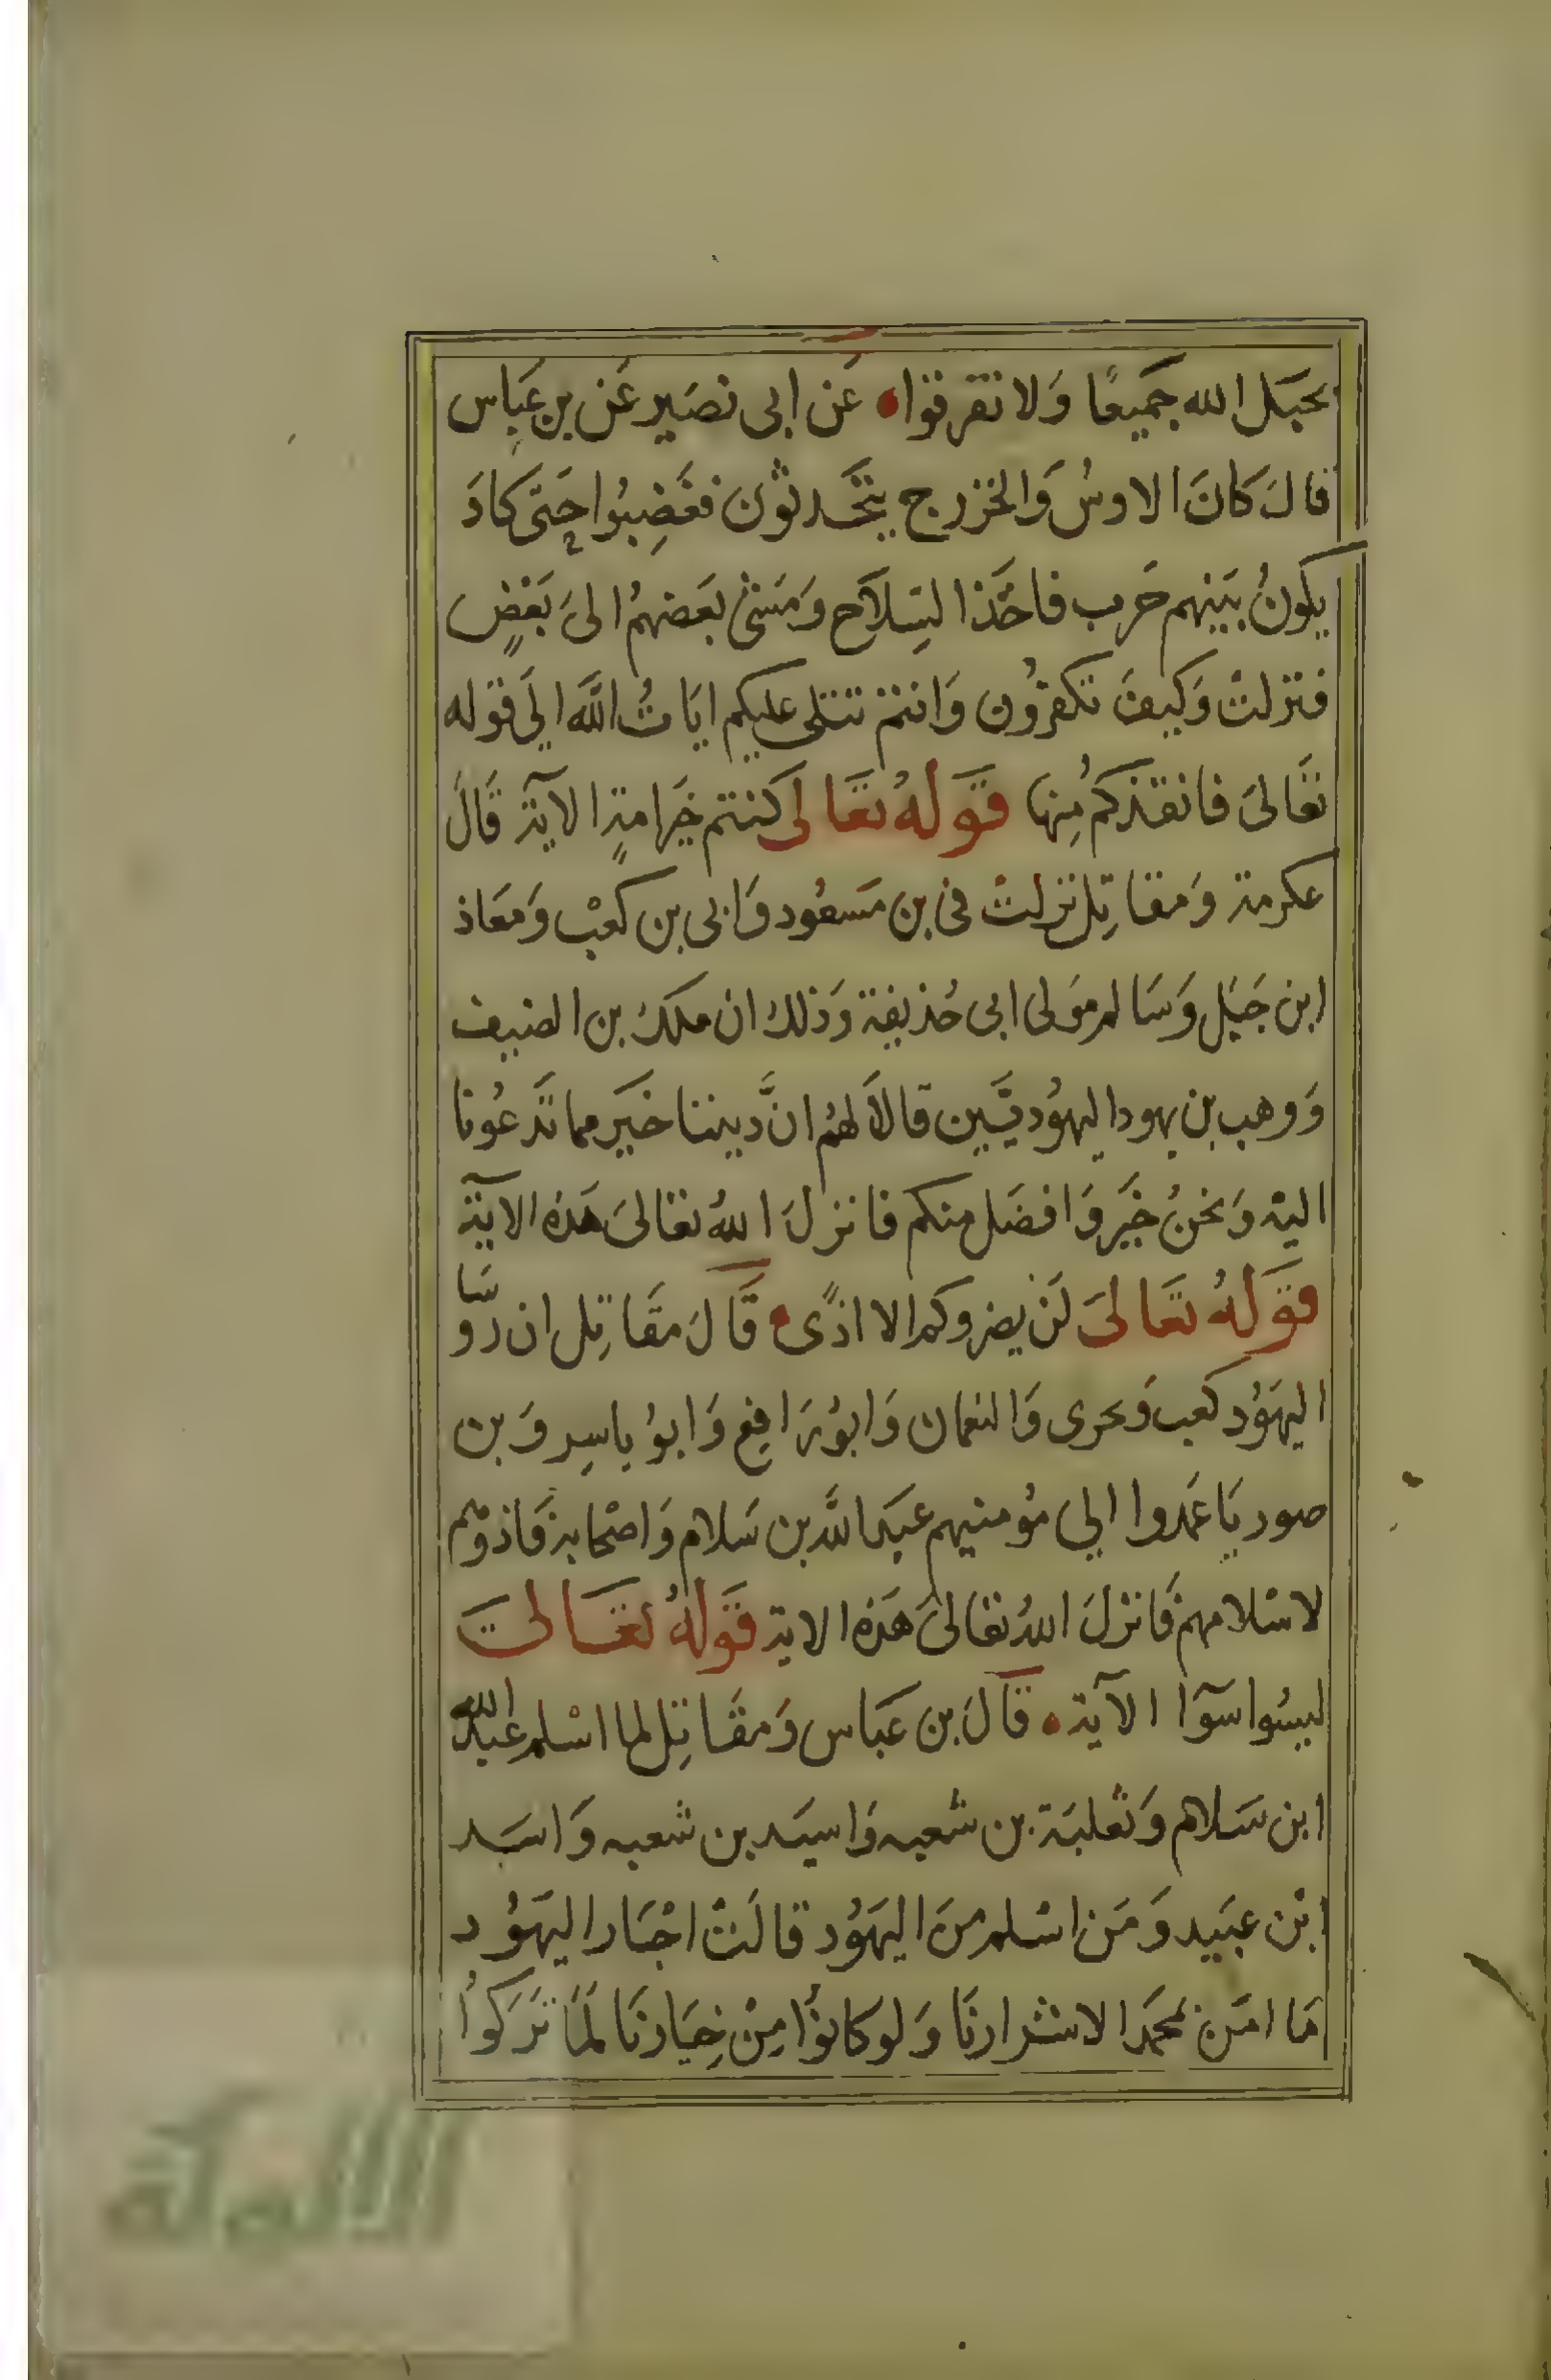 بحبل الله جَميعًا وَلا تفرقوا عَن ابى نصَير عَن بن عَباس
قالَ كانَ الاوسُ وَالخزرج يتحَدثون فغَضِبُوا حَتى كادَ
يكونُ بَينهم حَرب فاخَذ السِلاَح وَمَشىٰ بعَضهمُ الىَ بَعضٍ
فنزلت وَكيفَ تكفرُون وَانتم تتلى عليكم ايَاتُ اللَّه الَى قوله
تعَالىَ فانقذكمُ مِنها قَولهُ تعَالى كنتم خَير امةٍ الآية قَالَ
عكرمة وَمقاتِل نزلت فى بن مَسعُود وَابى بن كعْب وَمعَاذ
ابن جَبَل وَسَالم مَولى ابى حُذيفة وَذلك ان ملك بن الضيف
وَوهب بن يهودا اليهُوديَّين قالاَ لهُم انَّ ديننا خَير مما تَدعُونا
اليه وَنحنُ خَير وَافضَل منكم فانزلَ اللهُ تعالىَ هَذه الآية
قَولهُ تعَالىَ لَن يضروكم الا اذًى قَالَ مقَاتِل ان روسَا
اليهَوُد كعَب وَبحرى وَالنعمان وَابوُ رَافِع وَابوُ ياسِر وَبن
صوريَا عَمدوا الى مُومنيهم عبَد اللَّه بن سَلام وَاصْحابه فَاذوهم
لاسْلامهم فَانزلَ اللهُ تعالىَ هَذه الاية قَولهُ تعَالىَ
ليسُوا سَوآا الآية قَالَ بن عَباس وَمقَاتِل لما اسْلم عبد الله
ابن سَلام وَثعلبَة بن شعبه وَاسيَد بن شعبه وَاسَد
ابْن عبَيد وَمَن اسْلم منَ اليهَوُد قالَت احْبَار اليهَوُد
مَا امَن بمحمَد الا شرارنَا وَلو كانوُا مِنْ خِيَارنَا لمَا تَرَكوُا
الألوكة